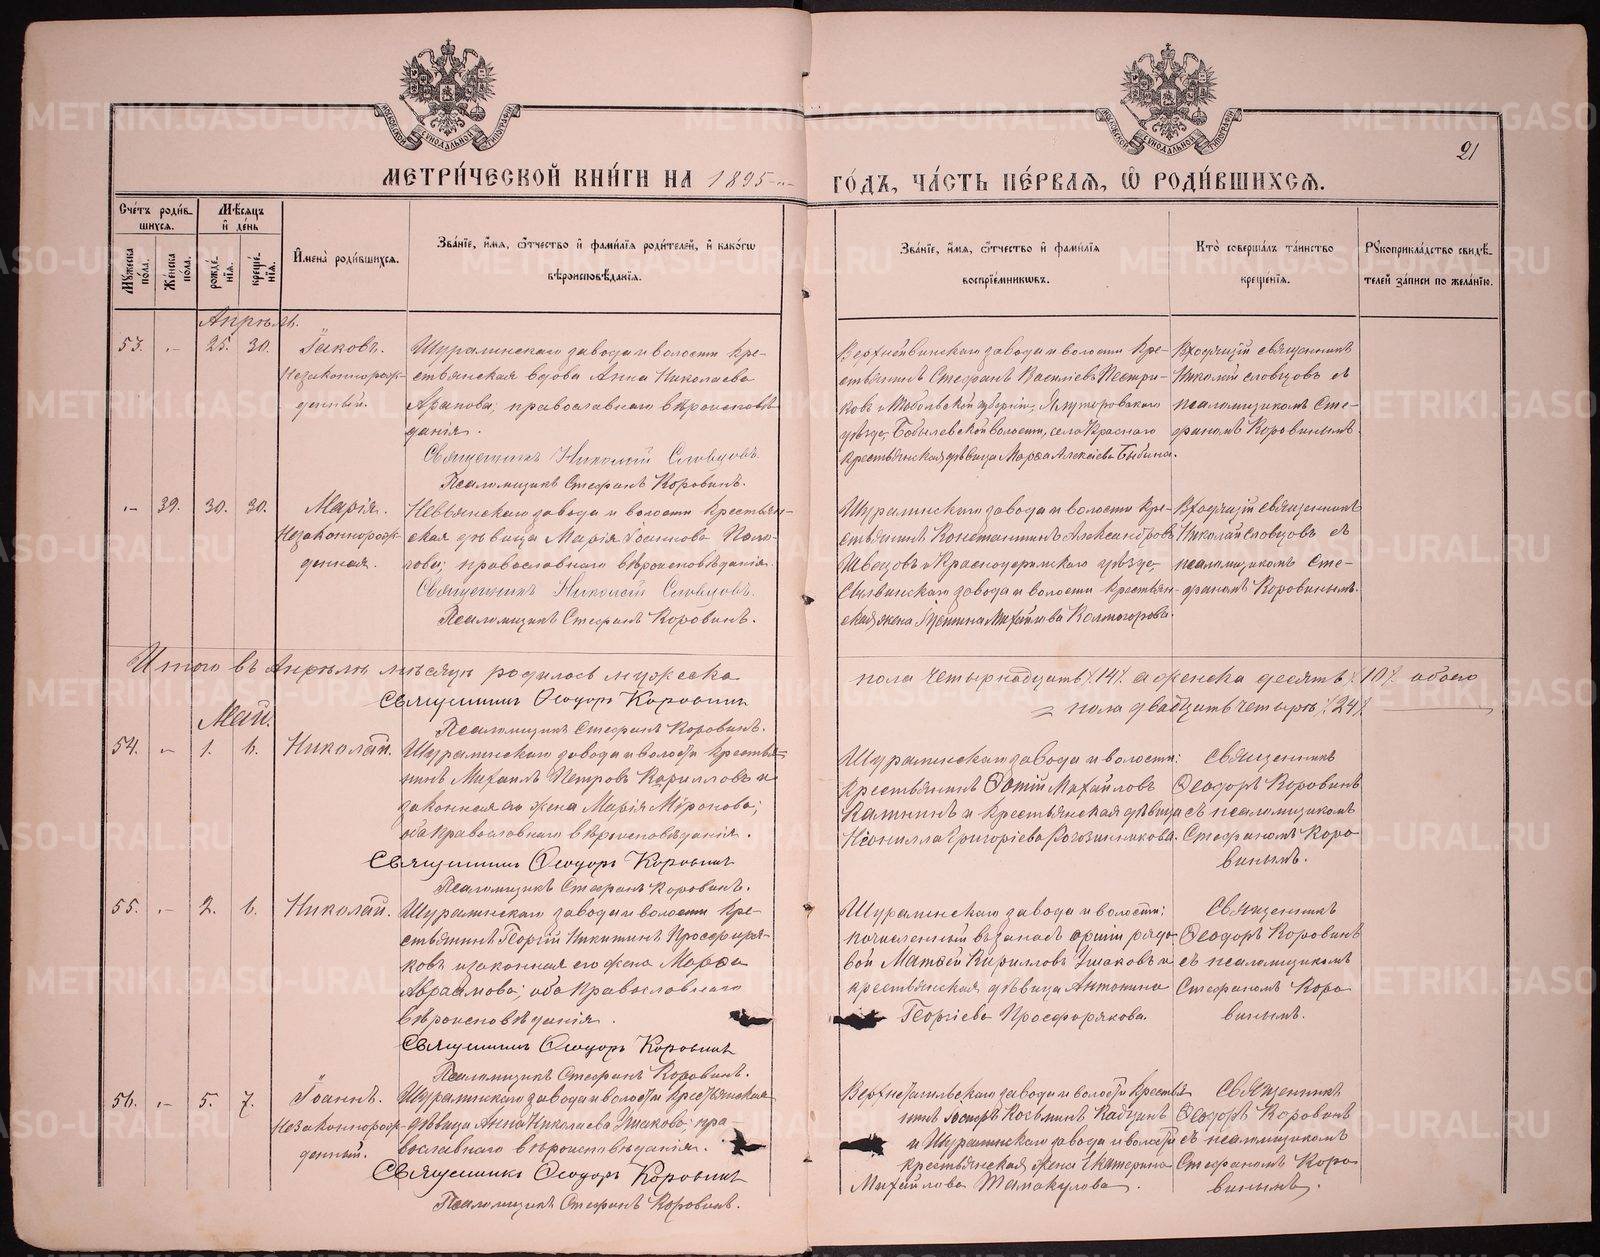 МЕТРИ́ЧЕСКОЙ КНИ́ГИ НА 1895 ГО́ДЪ, ЧА́СТЬ ПЕ́РВАЯ, Ѿ РОДИ́ВШИХСЯ.
21
Сче́тъ роди́в-
шихся.
Мужеска по́ла.
Же́нска по́ла.
Мѣ́сяцъ и де́нь
рожде́нїя.
креще́нїя.
Имена̀ роди́вшихся.
Зва́нїе, и́мя, ѻ҆́тчество и҆ фами́лїя роди́телей, и҆ како́гѡ
вѣроисповѣ́данїя.
Зва́нїе, и́мя, ѻ҆́тчество и҆ фами́лїя
воспрїе́мниковъ.
Кто̀ соверша́лъ та́инство
креще́нїя.
Рукоприкла́дство свидѣ́-
телей за́писи по жела́нїю.
Апрѣль.
53. 25. 30. Іаковъ.
Незаконнорож-
денный.
Шуралинскаго завода и волости кре-
стьянская вдова Анна Николаева
Арапова; православнаго вѣроисповѣ-
данія.
Священникъ Николай Словцовъ.
Псаломщикъ Стефанъ Коровинъ.
Верхнейвинскаго завода и волости кре-
стьянинъ Стефанъ Василіевъ Пестри-
ковъ и Тобольской губерніи, Ялуторовскаго
уѣзда, Бобылевской волости, села Краснаго
крестьянская дѣвица Марѳа Алексіева Быбина.
Входящій священникъ
Николай Словцовъ съ
псаломщикомъ Сте-
фаномъ Коровинымъ.
39. 30. 30. Марія.
Незаконнорож-
денная.
Невьянскаго завода и волости крестьян-
ская дѣвица Марія Іоаннова
православнаго вѣроисповѣданія.
Священникъ Николай Словцовъ.
Псаломщикъ Стефанъ Коровинъ.
Шуралинскаго завода и волости кре-
стьянинъ Константинъ Александровъ
Швецовъ и Красноуфимскаго уѣзда,
Сылвинскаго завода и волости крестьян-
ская жена Михайлова Колмогорова.
Входящій священникъ
Николай Словцовъ съ
псаломщикомъ Сте-
фаномъ Коровинымъ.
Итого въ Апрѣлѣ мѣсяцѣ родилось мужеска
пола четырнадцать /14/ а женска десять /10/ обоего
пола двадцать четыре /24/
Священникъ Ѳеодоръ Коровинъ
Псаломщикъ Стефанъ Коровинъ.
Май.
54. 1. 6. Николай.
Шуралинскаго завода и волости крестья-
нинъ Михаилъ Петровъ Кирилловъ и
законная его жена Марія Міронова;
оба православнаго вѣроисповѣданія.
Священникъ Ѳеодоръ Коровинъ
Псаломщикъ Стефанъ Коровинъ.
Шуралинскаго завода и волости:
крестьянинъ Фотій Михайловъ
Калининъ и крестьянская дѣвица
Неонилла Григоріева Рогозинникова.
Священникъ
Ѳеодоръ Коровинъ
съ псаломщикомъ
Стефаномъ Коро-
винымъ.
55. 2. 6. Николай.
Шуралинскаго завода и волости кре-
стьянинъ Георгій Никитинъ Просфиря-
ковъ и законная его жена Марѳа
Авраамова; оба православнаго
вѣроисповѣданія.
Священникъ Ѳеодоръ Коровинъ
Псаломщикъ Стефанъ Коровинъ.
Шуралинскаго завода и волости:
зачисленный въ запасъ арміи рядо-
вой Матѳей Кирилловъ Ушаковъ и
крестьянская дѣвица Антонина
Георгіева Просфорякова.
Священникъ
Ѳеодоръ Коровинъ
съ псаломщикомъ
Стефаномъ Коро-
винымъ.
56. 5. 7. Іоаннъ.
Незаконнорож-
денный.
Шуралинскаго завода и волости крестьянская
дѣвица Анна Николаева Ушакова; пра-
вославнаго вѣроисповѣданія.
Священникъ Ѳеодоръ Коровинъ
Псаломщикъ Стефанъ Коровинъ.
Верхнетагильскаго завода и волости крестья-
нинъ Косьминъ
и Шуралинскаго завода и волости
крестьянская жена Екатерина
Михайлова Тамакулова.
Священникъ
Ѳеодоръ Коровинъ
съ псаломщикомъ
Стефаномъ Коро-
винымъ.
METRIKI.GASO-URAL.RU